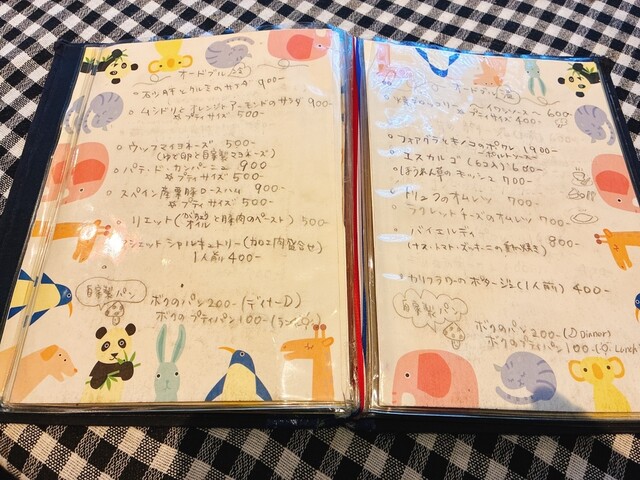 オードブル
砂肝とクルミのサラダ 900-
ムシドリとオレンジとアーモンドのサラダ 900-
プティサイズ 500-
ウッフマイヨネーズ 500-
(ゆで卵と自家製マヨネーズ)
パテ・ド・カンパーニュ 900
プティサイズ 500-
スペイン産栗豚ロースハム 900-
プティサイズ 500-
リエット(がちょうオイルと豚肉のペースト) 500-
アシェット シャルキュトリー(加工肉盛合せ)
1人前 400-
自家製パン
ボクのパン 200-(ディナー)
ボクのプティパン 100-(ランチ)
オードブル
600-
プティサイズ 400-
フォアグラとキノコのポワレ 1900-
エスカルゴ(6コ入) 600-
ほうれん草のキッシュ 700
トリュフのオムレツ 700-
ラクレットチーズのオムレツ 700-
バイエルディ 800-
(ナス・トマト・ズッキーニの重ね焼き)
カリフラワーのポタージュ(1人前) 400-
自家製パン
ボクのパン 200-(Dinner)
ボクのプティパン 100-(Lunch)